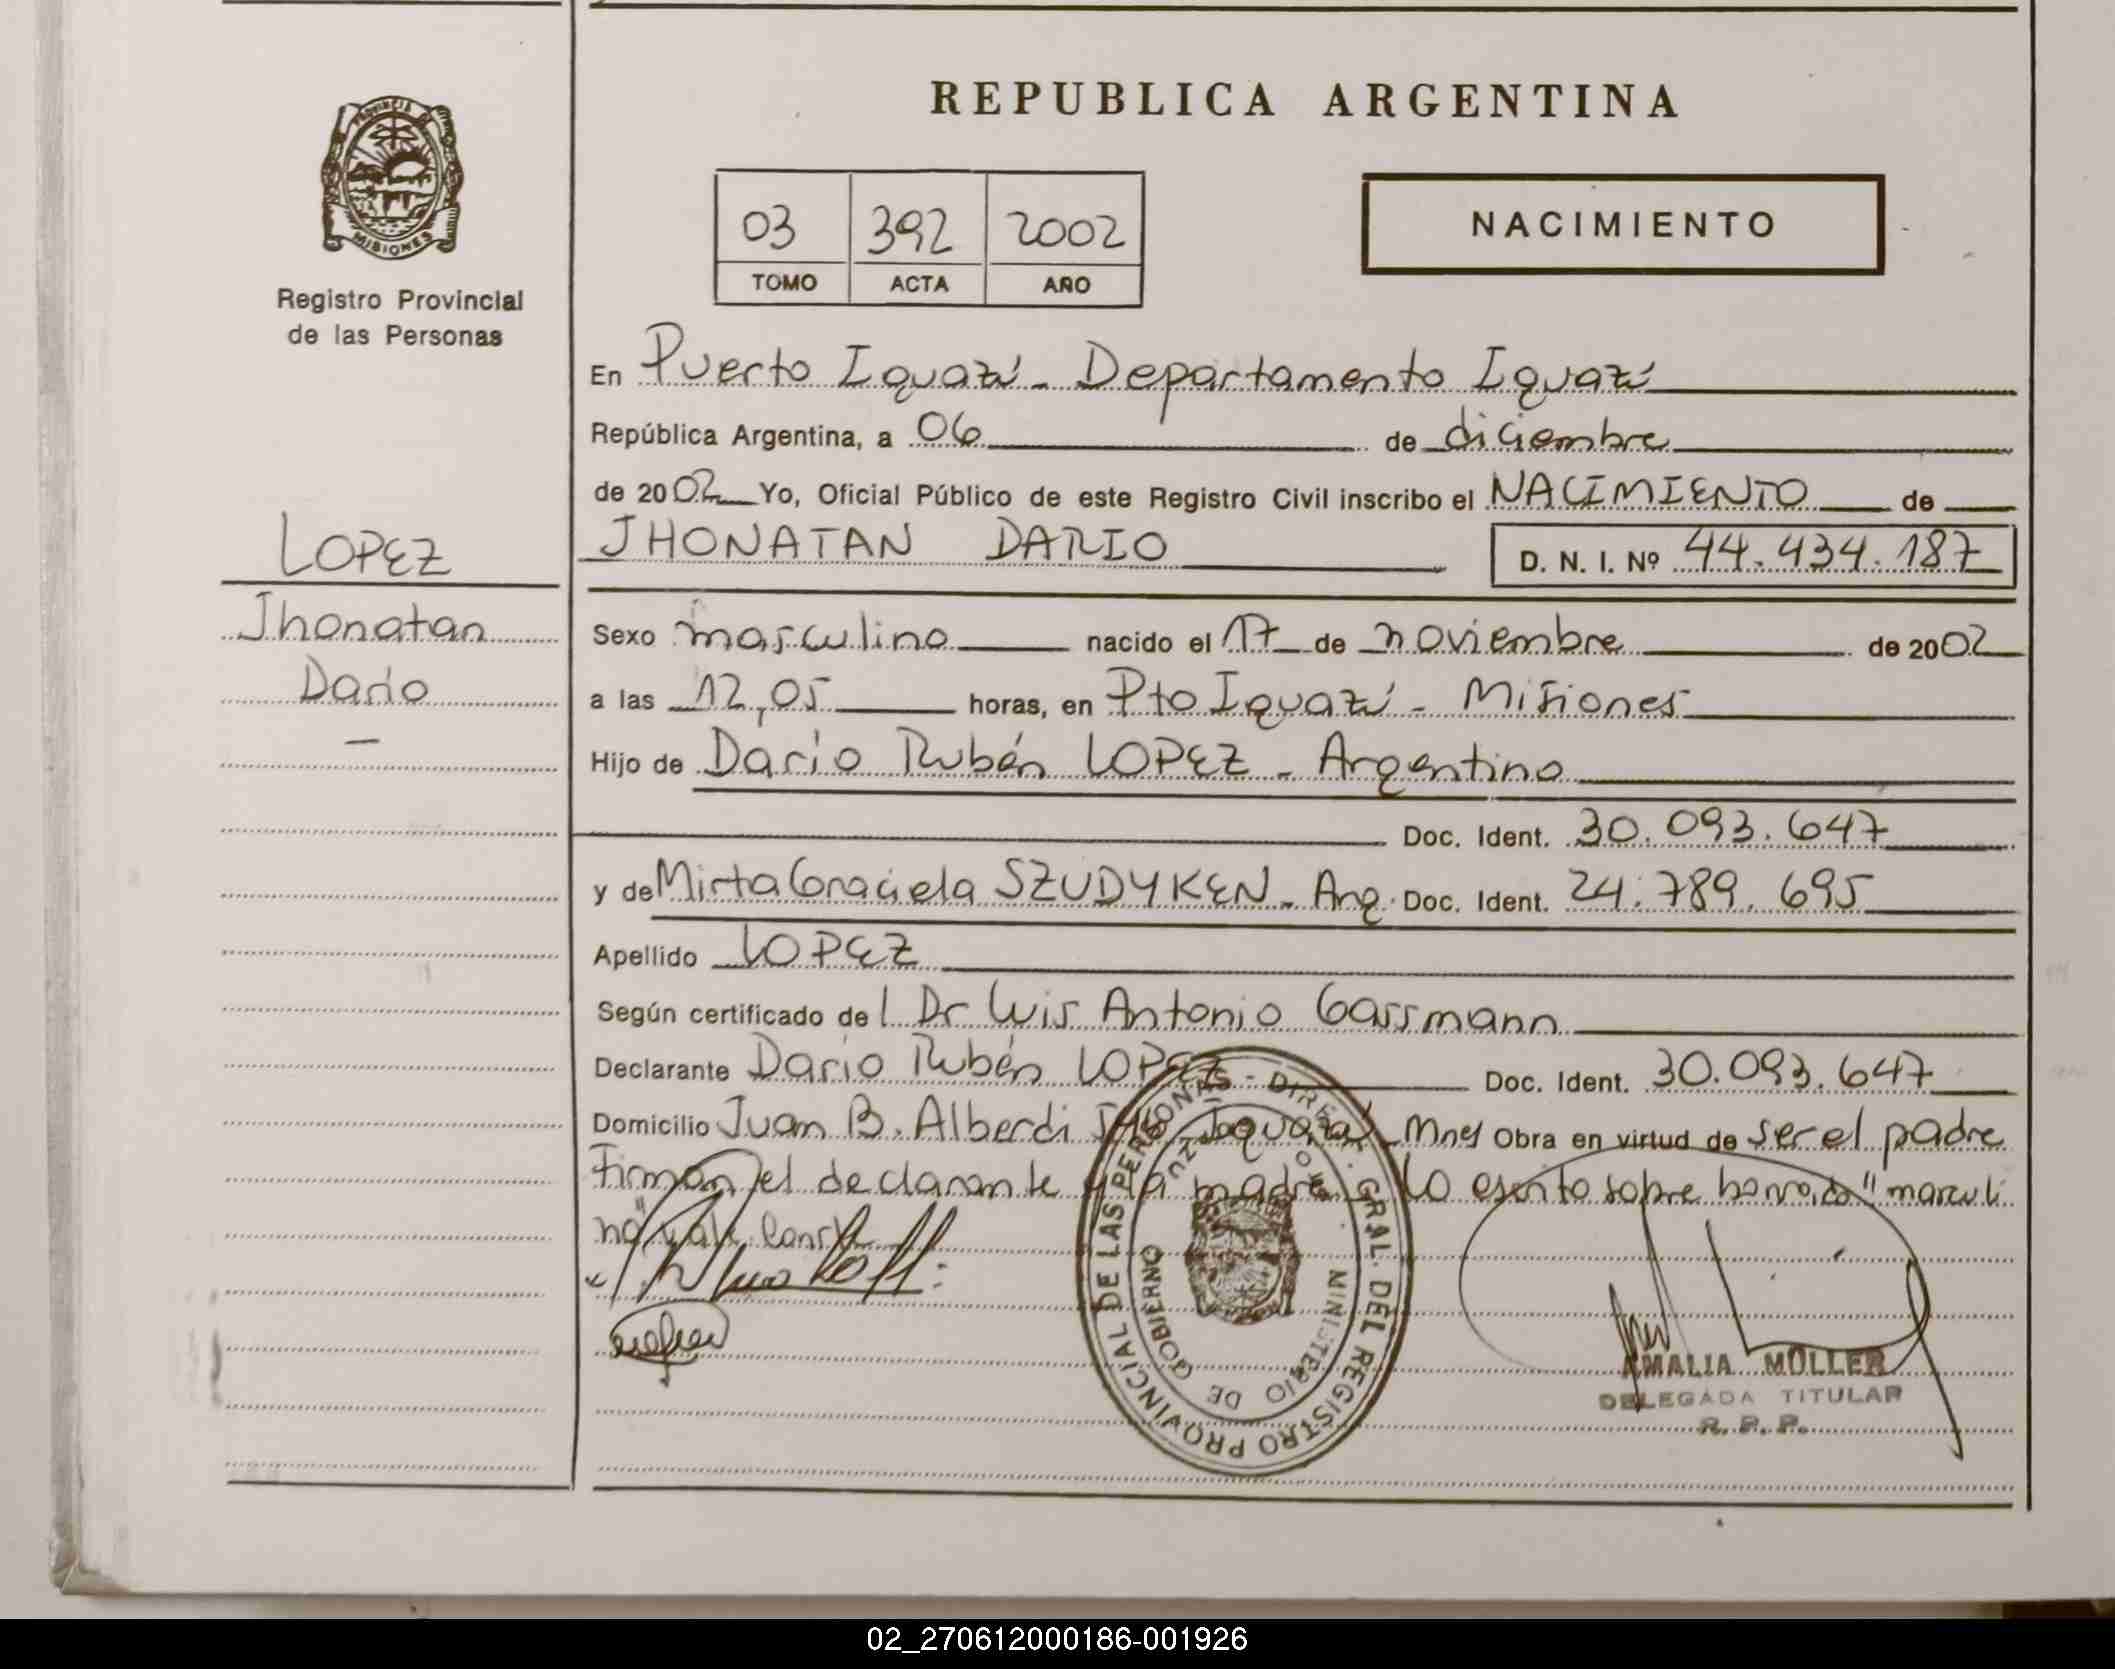 REPUBLICA ARGENTINA
PROVINCIA DE
MISIONES
Registro Provincial
de las Personas
03 392 2002
TOMO ACTA AÑO
NACIMIENTO
En Puerto Iguazú - Departamento Iguazú
República Argentina, a 06 de diciembre
de 2002 Yo, Oficial Público de este Registro Civil inscribo el NACIMIENTO de
JHONATAN DARIO D. N. I. Nº 44.434.187
LOPEZ
Jhonatan
Dario
Sexo masculino nacido el 17 de noviembre de 2002
a las 12,05 horas, en Pto Iguazú - Misiones
Hijo de Darío Rubén LOPEZ - Argentino
Doc. Ident. 30.093.647
y de Mirta Graciela SZUDYKEN - Arg. Doc. Ident. 24.789.695
Apellido LOPEZ
Según certificado de l Dr Luis Antonio Gassmann
Declarante Darío Rubén LOPEZ Doc. Ident. 30.093.647
Domicilio Juan B. Alberdi Iguazú - Mnes Obra en virtud de ser el padre
Firman el declarante y la madre. Lo escrito sobre borrado "masculi
no" vale
REGISTRO PROVINCIAL DE LAS PERSONAS - DIREC. GRAL. DEL
MINISTERIO DE GOBIERNO
AMALIA MÜLLER
DELEGADA TITULAR
R. P. P.
02_270612000186-001926